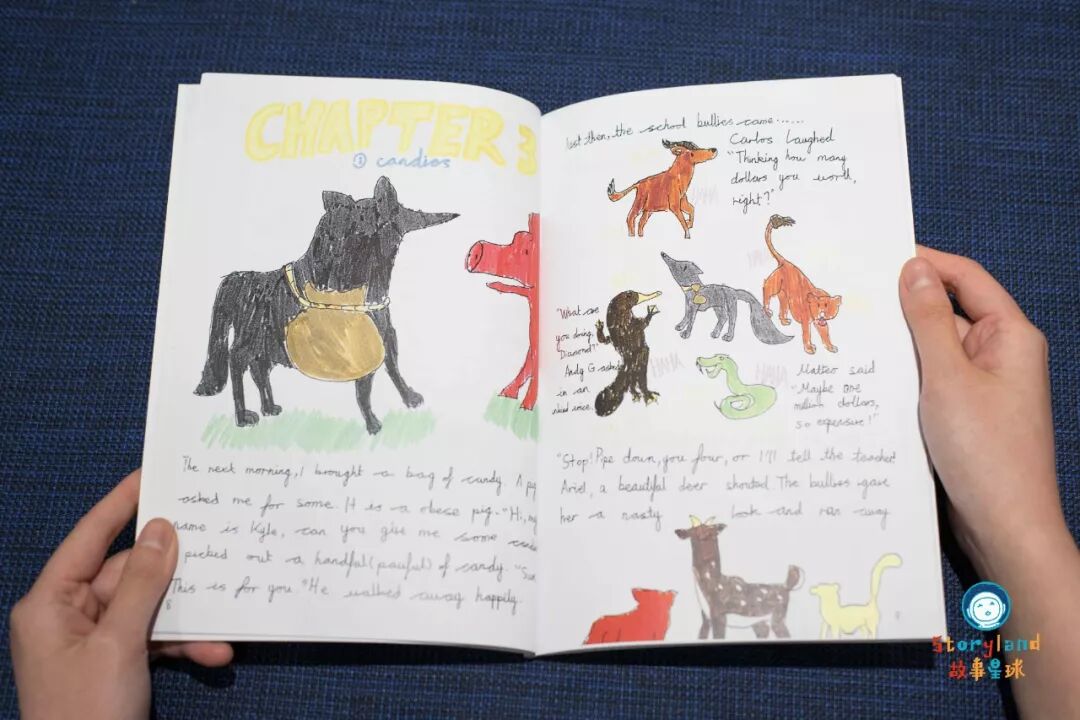 CHAPTER 3
① candies
The next morning, I brought a bag of candy. A pig
asked me for some. It is a obese pig. "Hi, my
name is Kyle, can you give me some
picked out a handful (pawful) of candy.
This is for you." He walked away happily.
8
Just then, the school bullies came......
Carlos Laughed
"Thinking how many
dollars you worth,
right?"
HAHA
HAHA
"What are
you doing,
Diamond?"
Andy G asked
in an
voice.
HAHA
HAHA
Matteo said
"Maybe one
million dollars,
so expensive!"
"Stop! Pipe down, you four, or I'll tell the teacher
Ariel, a beautiful deer shouted. The bullies gave
her a nasty look and ran away
9
Storyland
故事星球